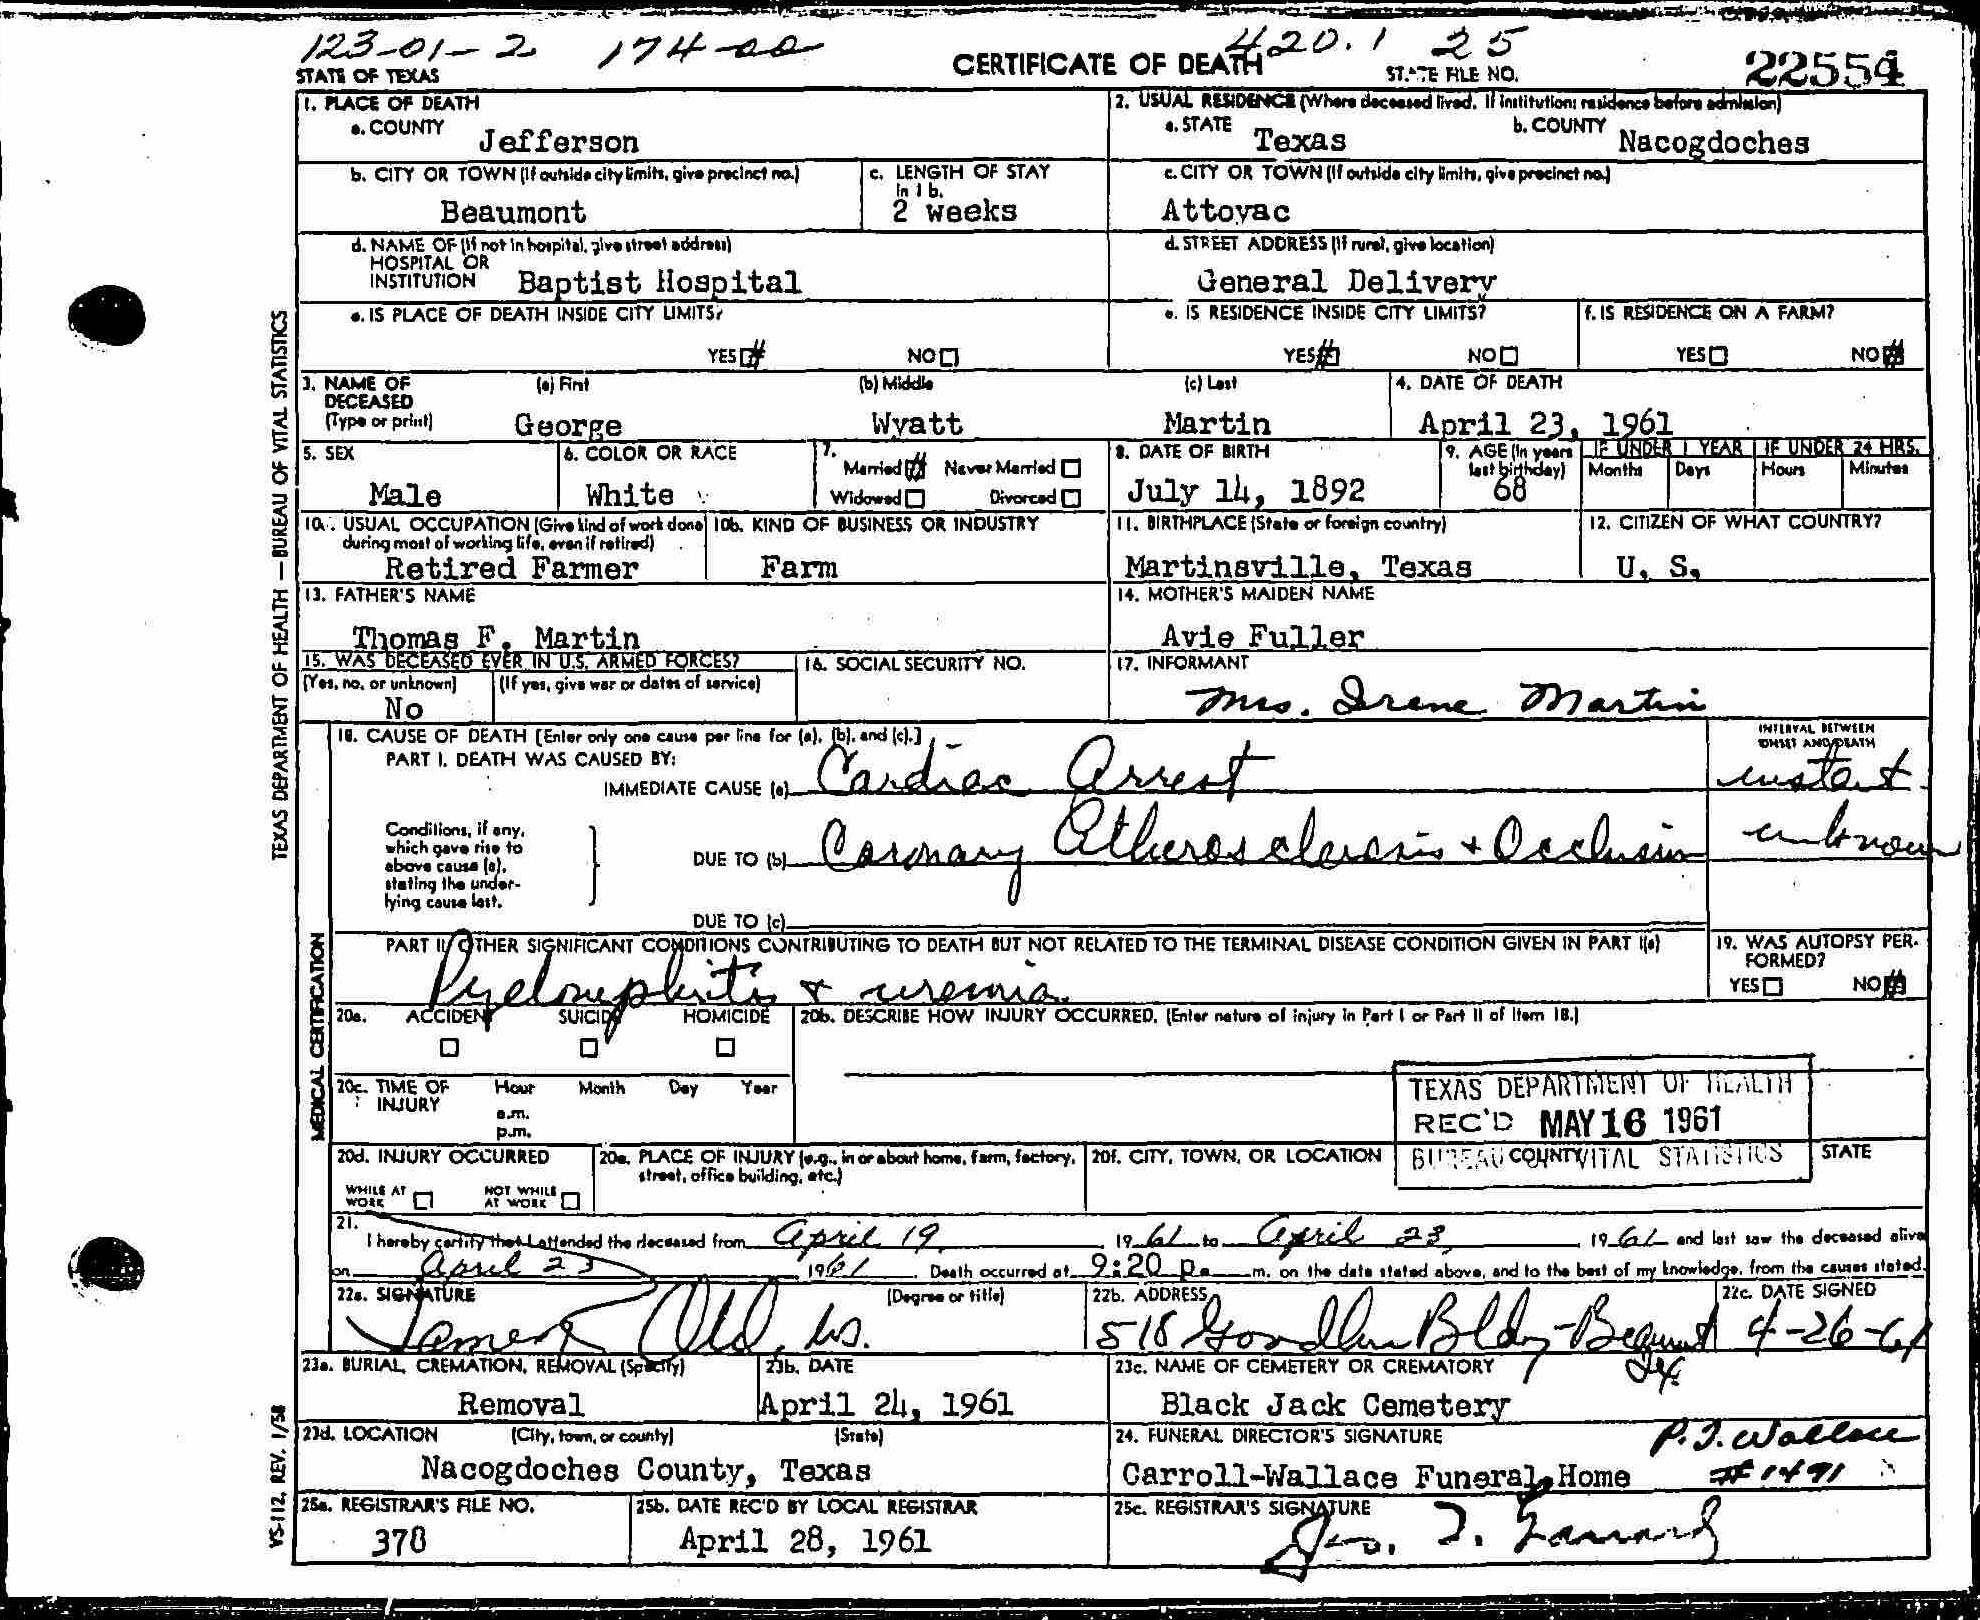 123-01-2 174-00 420.1 25
STATE OF TEXAS CERTIFICATE OF DEATH STATE FILE NO. 22554
1. PLACE OF DEATH
a. COUNTY Jefferson
2. USUAL RESIDENCE (Where deceased lived. If institution: residence before admission)
a. STATE Texas b. COUNTY Nacogdoches
b. CITY OR TOWN (If outside city limits, give precinct no.)
Beaumont
c. LENGTH OF STAY
in 1 b.
2 weeks
c. CITY OR TOWN (If outside city limits, give precinct no.)
Attoyac
d. NAME OF (If not in hospital, give street address)
HOSPITAL OR
INSTITUTION Baptist Hospital
d. STREET ADDRESS (If rural, give location)
General Delivery
e. IS PLACE OF DEATH INSIDE CITY LIMITS?
YES # NO
e. IS RESIDENCE INSIDE CITY LIMITS?
YES # NO
f. IS RESIDENCE ON A FARM?
YES NO #
3. NAME OF
DECEASED
(Type or print)
(a) First (b) Middle (c) Last
George Wyatt Martin
4. DATE OF DEATH
April 23, 1961
5. SEX
Male
6. COLOR OR RACE
White
7.
Married # Never Married
Widowed Divorced
8. DATE OF BIRTH
July 14, 1892
9. AGE (In years
last birthday)
68
IF UNDER 1 YEAR IF UNDER 24 HRS.
Months Days Hours Minutes
10a. USUAL OCCUPATION (Give kind of work done
during most of working life, even if retired)
Retired Farmer
10b. KIND OF BUSINESS OR INDUSTRY
Farm
11. BIRTHPLACE (State or foreign country)
Martinsville, Texas
12. CITIZEN OF WHAT COUNTRY?
U. S.
13. FATHER'S NAME
Thomas F. Martin
14. MOTHER'S MAIDEN NAME
Avie Fuller
15. WAS DECEASED EVER IN U.S. ARMED FORCES?
(Yes, no, or unknown) (If yes, give war or dates of service)
No
16. SOCIAL SECURITY NO.
17. INFORMANT
Mrs. Irene Martin
18. CAUSE OF DEATH [Enter only one cause per line for (a), (b), and (c).]
PART I. DEATH WAS CAUSED BY:
IMMEDIATE CAUSE (a) Cardiac Arrest
INTERVAL BETWEEN
ONSET AND DEATH
instant
Conditions, if any,
which gave rise to
above cause (a),
stating the under-
lying cause last.
DUE TO (b) Coronary Atherosclerosis + Occlusion
unknown
DUE TO (c)
PART II. OTHER SIGNIFICANT CONDITIONS CONTRIBUTING TO DEATH BUT NOT RELATED TO THE TERMINAL DISEASE CONDITION GIVEN IN PART I(a)
Pyelonephritis + uremia
19. WAS AUTOPSY PER-
FORMED?
YES NO #
20a. ACCIDENT SUICIDE HOMICIDE
20b. DESCRIBE HOW INJURY OCCURRED. (Enter nature of injury in Part I or Part II of Item 18.)
20c. TIME OF
INJURY
Hour Month Day Year
a.m.
p.m.
TEXAS DEPARTMENT OF HEALTH
REC'D MAY 16 1961
BUREAU VITAL STATISTICS
20d. INJURY OCCURRED
WHILE AT
WORK
NOT WHILE
AT WORK
20e. PLACE OF INJURY (e.g., in or about home, farm, factory,
street, office building, etc.)
20f. CITY, TOWN, OR LOCATION COUNTY STATE
21.
I hereby certify that I attended the deceased from April 19, 1961 to April 23, 1961 and last saw the deceased alive
on April 23 1961. Death occurred at 9:20 p. m. on the date stated above, and to the best of my knowledge, from the causes stated.
22a. SIGNATURE (Degree or title)
22b. ADDRESS
518 Goodhue Bldg - Beaumont Tx.
22c. DATE SIGNED
4-26-61
23a. BURIAL, CREMATION, REMOVAL (Specify)
Removal
23b. DATE
April 24, 1961
23c. NAME OF CEMETERY OR CREMATORY
Black Jack Cemetery
23d. LOCATION (City, town, or county) (State)
Nacogdoches County, Texas
24. FUNERAL DIRECTOR'S SIGNATURE
Carroll-Wallace Funeral Home
P.J. Wallace
# 1491
25a. REGISTRAR'S FILE NO.
370
25b. DATE REC'D BY LOCAL REGISTRAR
April 28, 1961
25c. REGISTRAR'S SIGNATURE
TEXAS DEPARTMENT OF HEALTH — BUREAU OF VITAL STATISTICS
MEDICAL CERTIFICATION
VS-112, REV. 1/58